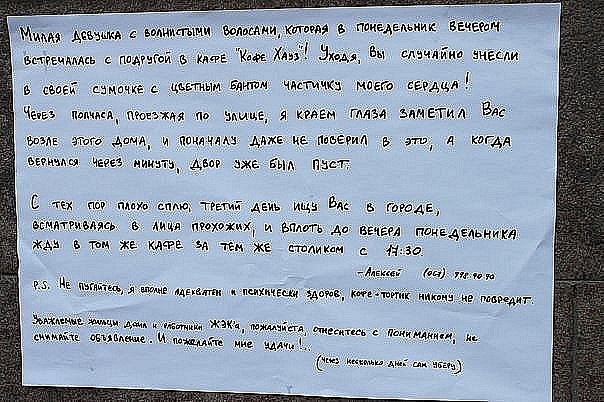 Милая девушка с волнистыми волосами, которая в понедельник вечером
встречалась с подругой в кафе "Кофе Хауз"! Уходя, Вы случайно унесли
в своей сумочке с цветным бантом частичку моего сердца!
Через полчаса, проезжая по улице, я краем глаза заметил Вас
возле этого дома, и поначалу даже не поверил в это, а когда
вернулся через минуту, двор уже был пуст.
С тех пор плохо сплю, третий день ищу Вас в городе,
всматриваясь в лица прохожих, и вплоть до вечера понедельника
жду в том же кафе за тем же столиком с 17:30.
- Алексей (057) 778 90 70
P.S. Не пугайтесь, я вполне адекватен и психически здоров, кофе-тортик никому не повредит.
Уважаемые жильцы дома и работники ЖЭК'а, пожалуйста, отнеситесь с пониманием, не
снимайте объявление. И пожелайте мне удачи!..
(через несколько дней сам уберу)